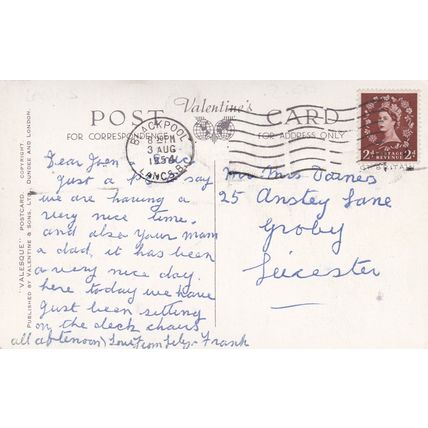 POST Valentine's CARD
FOR CORRESPONDENCE FOR ADDRESS ONLY
BLACKPOOL
3 AUG
LANCS.
POSTAGE REVENUE
2d 2d
"VALESQUE" POSTCARD COPYRIGHT.
PUBLISHED BY VALENTINE & SONS, LTD., DUNDEE AND LONDON.
Dear Joan
Just a say
we are having a
very nice time.
and also your mam
a dad, it has been
a very nice day.
here today we have
just been sitting
on the deck chairs
all afternoon Love from Lily - Frank
Mr Mrs
25 Anstey Lane
Groby
Leicester